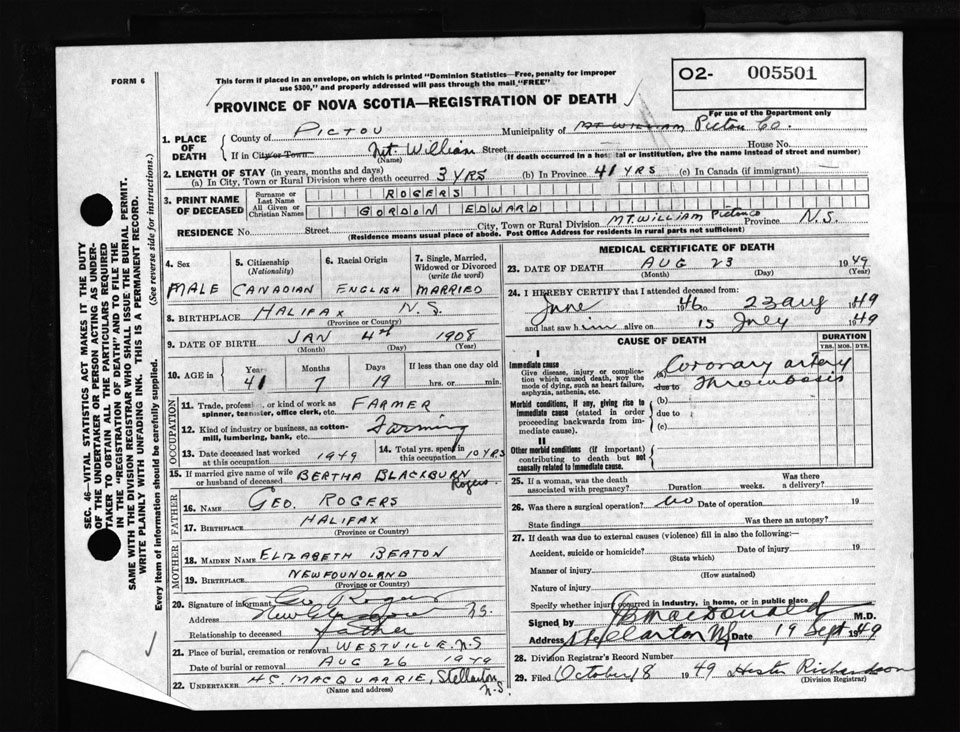 FORM 6
This form if placed in an envelope, on which is printed "Dominion Statistics—Free, penalty for improper
use $300," and properly addressed will pass through the mail "FREE"
O2- 005501
PROVINCE OF NOVA SCOTIA—REGISTRATION OF DEATH
For use of the Department only
1. PLACE OF DEATH
County of PICTOU Municipality of MT. WILLIAM Pictou Co.
If in City or Town Mt. William Street House No.
(Name) (If death occurred in a hospital or institution, give the name instead of street and number)
2. LENGTH OF STAY (in years, months and days)
(a) In City, Town or Rural Division where death occurred 3 YRS (b) In Province 41 YRS (c) In Canada (if immigrant)
3. PRINT NAME OF DECEASED
Surname or Last Name ROGERS
All Given or Christian Names GORDON EDWARD
RESIDENCE No. Street City, Town or Rural Division MT. WILLIAM Pictou Co Province N.S.
(Residence means usual place of abode. Post Office Address for residents in rural parts not sufficient)
4. Sex 5. Citizenship (Nationality) 6. Racial Origin 7. Single, Married, Widowed or Divorced (write the word)
MALE CANADIAN ENGLISH MARRIED
8. BIRTHPLACE HALIFAX N.S.
(Province or Country)
9. DATE OF BIRTH JAN 4th 1908
(Month) (Day) (Year)
10. AGE in Years Months Days If less than one day old
41 7 19 hrs. or min.
OCCUPATION
11. Trade, profession, or kind of work as spinner, teamster, office clerk, etc. FARMER
12. Kind of industry or business, as cotton-mill, lumbering, bank, etc. Farming
13. Date deceased last worked at this occupation 1949 14. Total yrs. spent in this occupation 10 YRS
15. If married give name of wife or husband of deceased BERTHA BLACKBURN Rogers
FATHER
16. Name GEO. ROGERS
17. BIRTHPLACE HALIFAX
(Province or Country)
MOTHER
18. MAIDEN NAME ELIZABETH BEATON
19. BIRTHPLACE NEWFOUNDLAND
(Province or Country)
20. Signature of informant Geo Rogers
Address New Glasgow N.S.
Relationship to deceased Father
21. Place of burial, cremation or removal WESTVILLE, N.S
Date of burial or removal AUG 26 1949
22. UNDERTAKER H.S. MACQUARRIE, Stellarton N.S.
(Name and address)
MEDICAL CERTIFICATE OF DEATH
23. DATE OF DEATH AUG 23 1949
(Month) (Day) (Year)
24. I HEREBY CERTIFY that I attended deceased from:
June 1946 to 23 Aug 1949
and last saw him alive on 15 July 1949
CAUSE OF DEATH DURATION
YRS. MOS. DYS.
I
Immediate cause
Give disease, injury or complication which caused death, NOT the mode of dying, such as heart failure, asphyxia, asthenia, etc.
(a) Coronary artery
due to thrombosis
Morbid conditions, if any, giving rise to immediate cause (stated in order proceeding backwards from immediate cause).
(b)
due to
(c)
II
Other morbid conditions (if important) contributing to death but not causally related to immediate cause.
25. If a woman, was the death associated with pregnancy? Duration weeks. Was there a delivery?
26. Was there a surgical operation? No Date of operation 19
State findings Was there an autopsy?
27. If death was due to external causes (violence) fill in also the following:—
Accident, suicide or homicide? Date of injury 19
(State which)
Manner of injury
(How sustained)
Nature of injury
Specify whether injury occurred in industry, in home, or in public place
Signed by JB MacDonald M.D.
Address Stellarton NS Date 19 Sept 1949
28. Division Registrar's Record Number
29. Filed October 18 1949 Hester Richardson
(Division Registrar)
SEC. 46—VITAL STATISTICS ACT MAKES IT THE DUTY
OF THE UNDERTAKER OR PERSON ACTING AS UNDER-
TAKER TO OBTAIN ALL THE PARTICULARS REQUIRED
IN THE "REGISTRATION OF DEATH" AND TO FILE THE
SAME WITH THE DIVISION REGISTRAR WHO SHALL ISSUE THE BURIAL PERMIT.
WRITE PLAINLY WITH UNFADING INK. THIS IS A PERMANENT RECORD.
Every item of information should be carefully supplied. (See reverse side for instructions.)